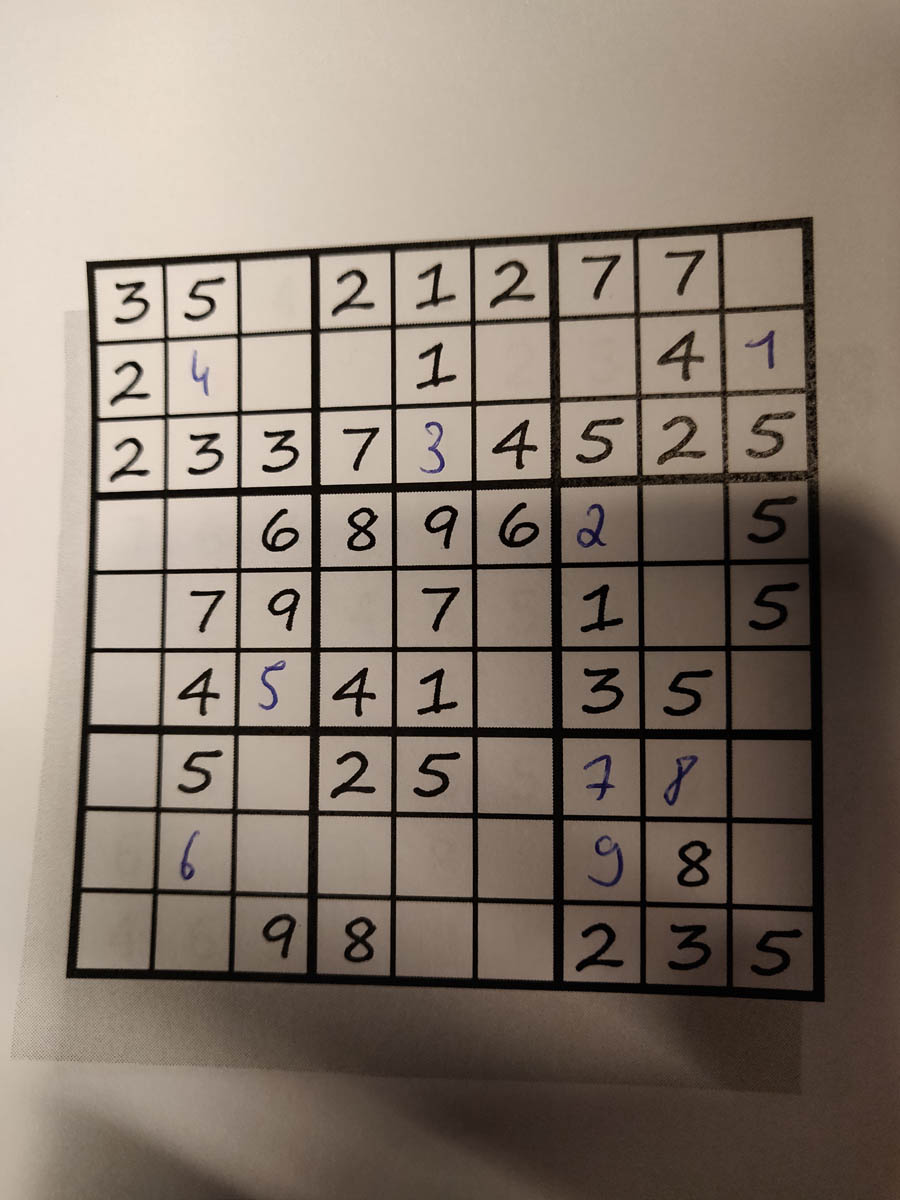 3 5 2 1 2 7 7
2 4 1 4 1
2 3 3 7 3 4 5 2 5
6 8 9 6 2 5
7 9 7 1 5
4 5 4 1 3 5
5 2 5 7 8
6 9 8
9 8 2 3 5